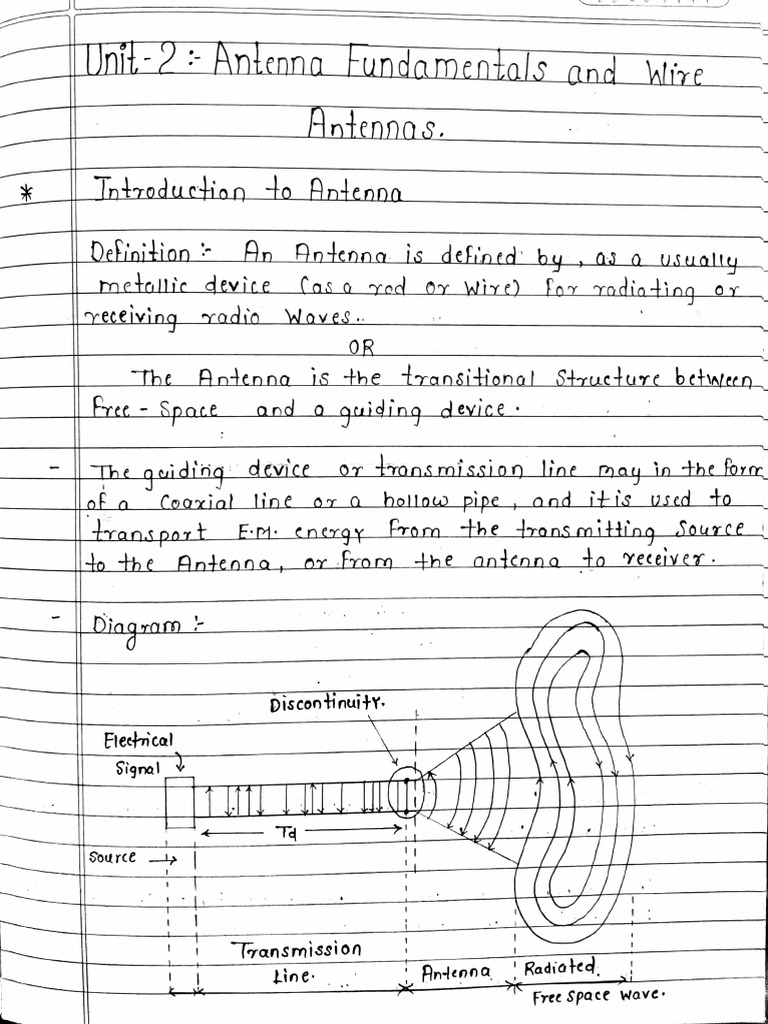 Unit-2:- Antenna Fundamentals and Wire
Antennas.
* Introduction to Antenna
Definition:- An Antenna is defined by, as a usually
metallic device (as a rod or wire) for radiating or
receiving radio waves.
OR
The Antenna is the transitional structure between
free-space and a guiding device.
- The guiding device or transmission line may in the form
of a coaxial line or a hollow pipe, and it is used to
transport E.M. energy from the transmitting source
to the Antenna, or from the antenna to receiver.
- Diagram:-
Discontinuity.
Electrical
Signal
Td
Source
Transmission
Line.
Antenna
Radiated
Free space wave.